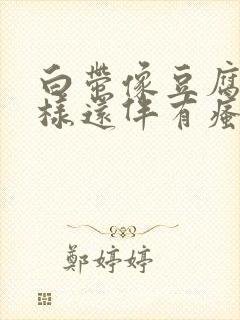 白帶像豆腐
樣還伴有瘙
鄭婷婷